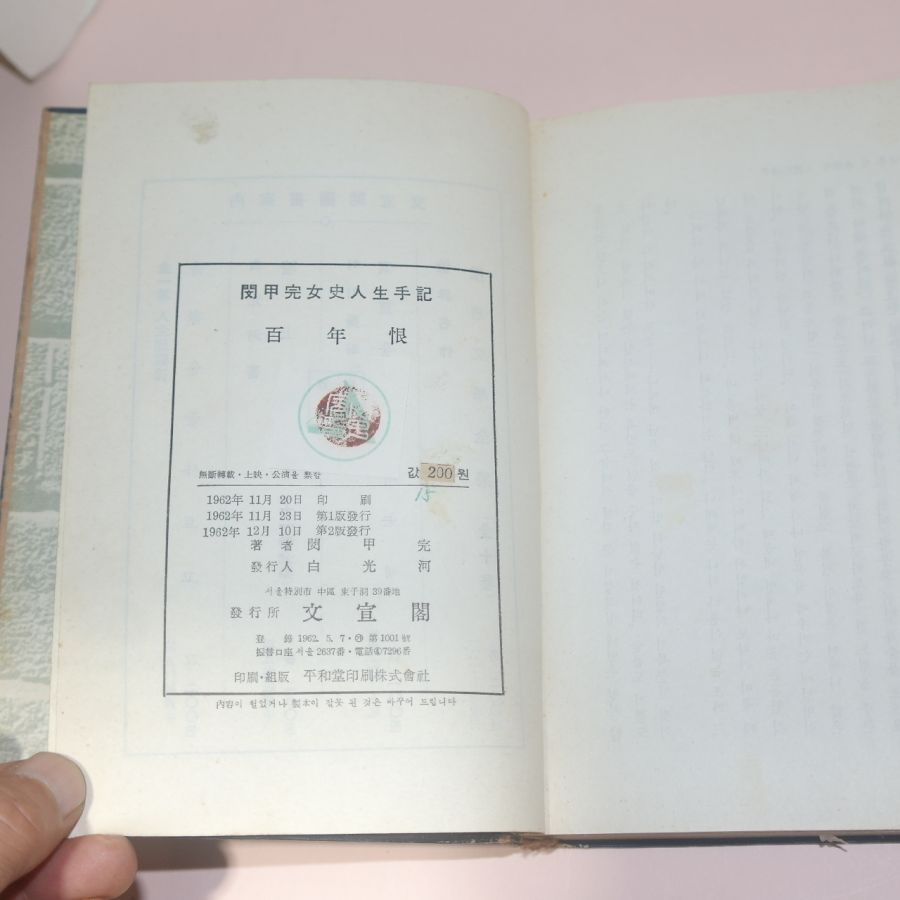 閔甲完女史人生手記
百年恨
無斷轉載・上映・公演을 禁함
값 200원
15
1962年 11月 20日 印刷
1962年 11月 23日 第1版發行
1962年 12月 10日 第2版發行
著者 閔甲完
發行人 白光河
서울特別市 中區 東子洞 39番地
發行所 文宣閣
登錄 1962. 5. 7・第1001號
振替口座서울2637番・電話④7296番
印刷・組版 平和堂印刷株式會社
內容이 헐었거나 製本이 잘못 된 것은 바꾸어 드립니다